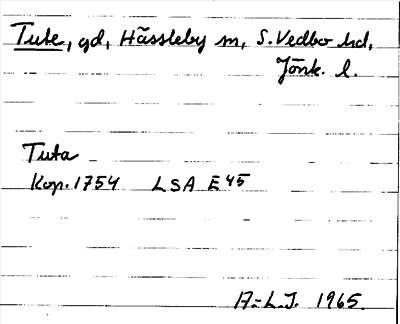 Tute, gd, Hässleby sn, S. Vedbo hd,
Jönk. l.
Tuta
Kop. 1754 LSA E45
A.-L.J. 1965.